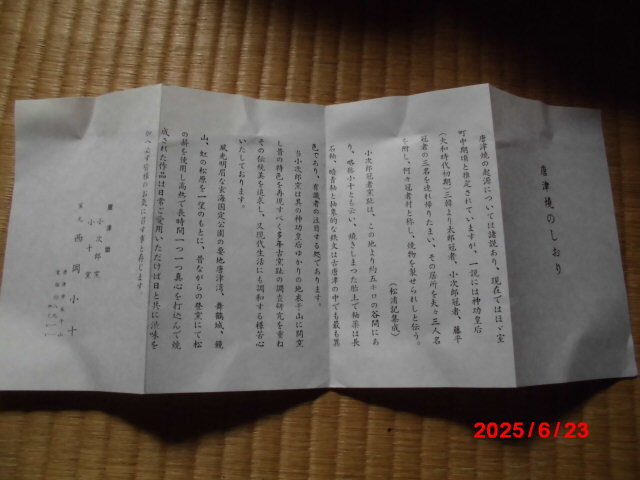 唐津焼のしおり
唐津焼の起源については諸説あり、現在ではほゞ室
町中期頃と推定されていますが、一説には神功皇后
(大和時代初期)三韓より太郎冠者、小次郎冠者、藤平
冠者の三名を連れ帰りたまい、その居所を夫々三人名
を附し、何々冠者村と称し、焼物を製せられしと伝う。
(松浦記集成)
小次郎冠者窯趾は、この地より約五キロの谷間にあ
り、略称小十とも云い、焼きしまつた胎土で釉薬は長
石釉、暗青釉と抽象的な鉄文は古唐津の中でも最も異
色であり、有識者の注目する処であります。
当小次郎窯は其の神功皇后ゆかりの地衣干山に開窯
し昔の特色を再現すべく多年古窯趾の調査研究を重ね
その伝統美を追求し、又現代生活にも調和する様苦心
いたしております。
風光明眉な玄海国定公園の要地唐津湾、舞鶴城、鏡
山、虹の松原を一望のもとに、昔ながらの登窯にて松
の薪を使用し高熱で長時間一つ一つ真心を打込んで焼
成された作品は日常ご愛用いただけば日と共に渋味を
加へ必ず皆様のお気に召す事と存じます。
唐津焼
小次郎窯
小十窯
窯元 西岡小十
唐津市衣干山